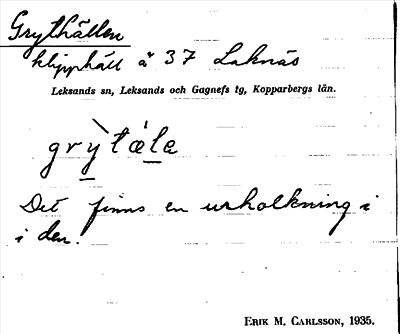 Grythällen
klipphäll å 37 Laknäs
Leksands sn, Leksands och Gagnefs tg, Kopparbergs län.
grỳtǽle
Det finns en urholkning i
i den.
ERIK M. CARLSSON, 1935.